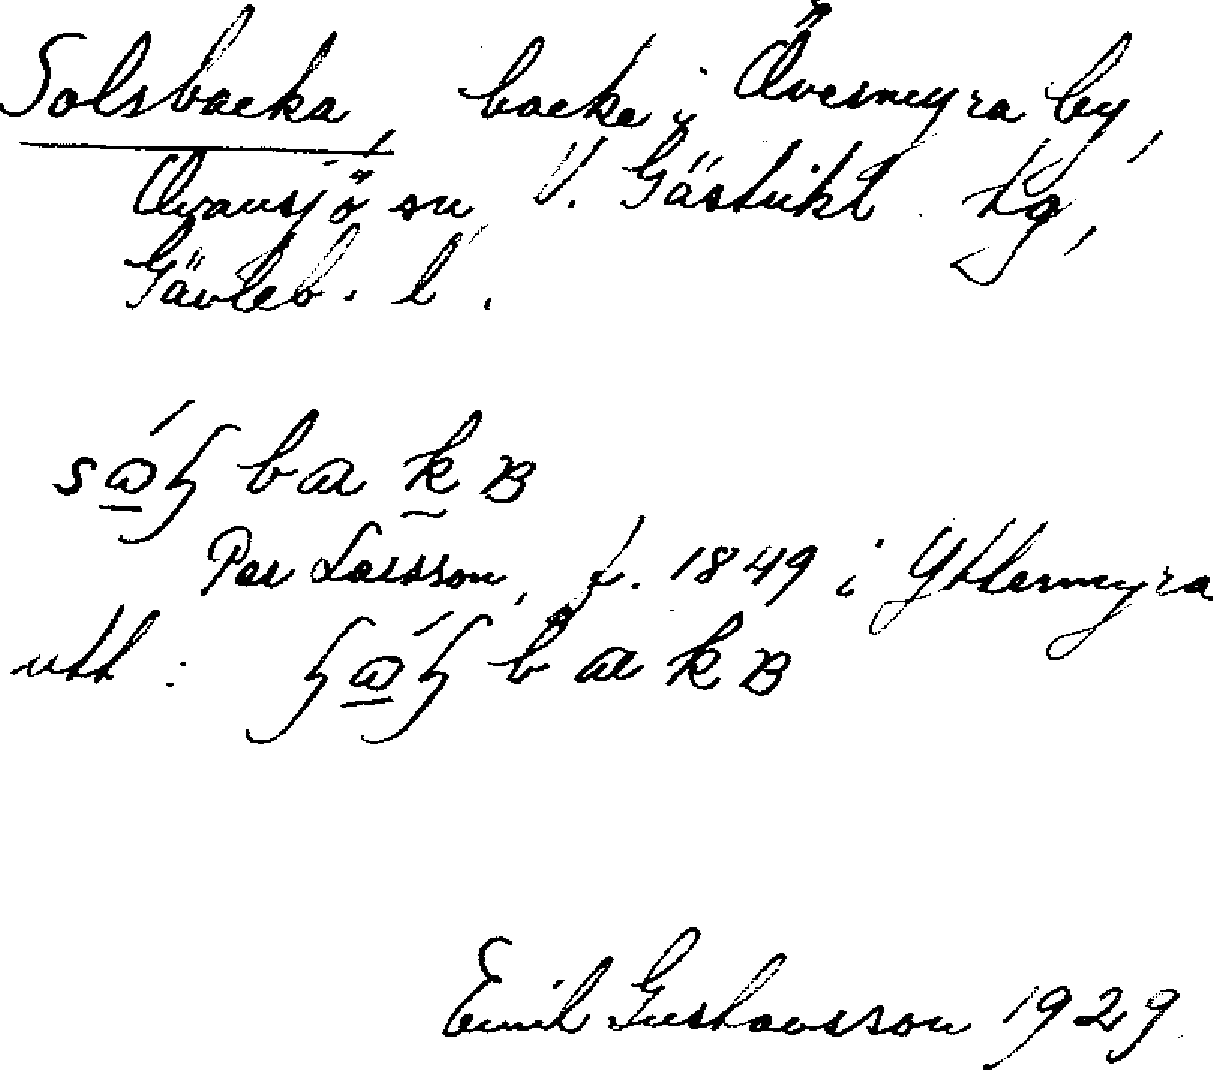 Solsbacka, backe i Övermyra by,
Ovansjö sn, V. Gästrikl. tg,
Gävleb. l.
Per Larsson, f. 1849 i Yttermyra
utt:
Emil Gustavsson 1929.